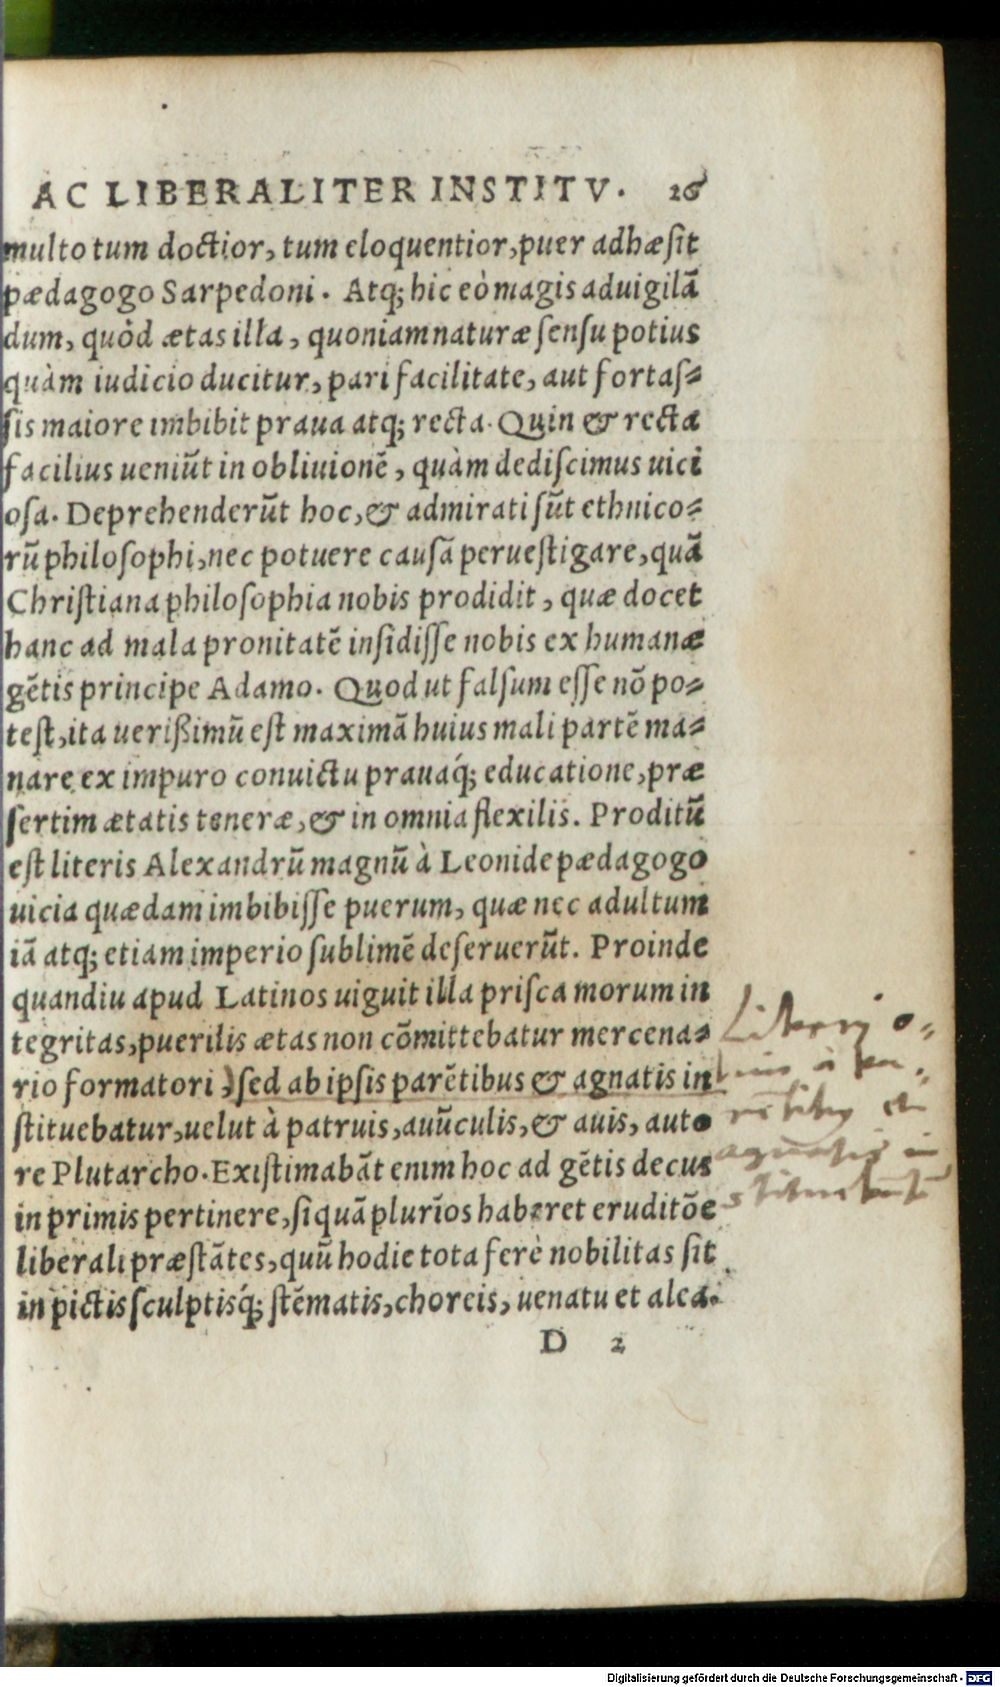 AC LIBERALITER INSTITV. 26
multo tum doctior, tum eloquentior, puer adhæsit
pædagogo Sarpedoni. Atq; hic eò magis aduigilā
dum, quòd ætas illa, quoniam naturæ sensu potius
quàm iudicio ducitur, pari facilitate, aut fortas-
sis maiore imbibit praua atq; recta. Quin & recta
facilius ueniūt in obliuionē, quàm dediscimus uici
osa. Deprehenderūt hoc, & admirati sūt ethnico-
rū philosophi, nec potuere causā peruestigare, quā
Christiana philosophia nobis prodidit, quæ docet
hanc ad mala pronitatē insidisse nobis ex humanæ
gētis principe Adamo. Quod ut falsum esse nō po-
test, ita uerißimū est maximā huius mali partē ma-
nare ex impuro conuictu prauaq́; educatione, præ
sertim ætatis teneræ, & in omnia flexilis. Proditū
est literis Alexandrū magnū à Leonide pædagogo
uicia quædam imbibisse puerum, quæ nec adultum
iā atq; etiam imperio sublimē deseruerūt. Proinde
quandiu apud Latinos uiguit illa prisca morum in
tegritas, puerilis ætas non cōmittebatur mercena-
rio formatori, sed ab ipsis parētibus & agnatis in
stituebatur, uelut à patruis, auūculis, & auis, auto
re Plutarcho. Existimabāt enim hoc ad gētis decus
in primis pertinere, si quā plurīos haberet eruditōe
liberali præstātes, quū hodie tota ferè nobilitas sit
in pictis sculptisq́; stēmatis, choreis, uenatu et alea.
D 2
à
et
agnatis in